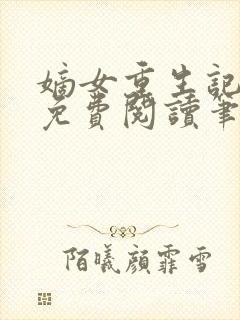 嫡女重生記
免費閱讀筆
陌曦顏霏雪